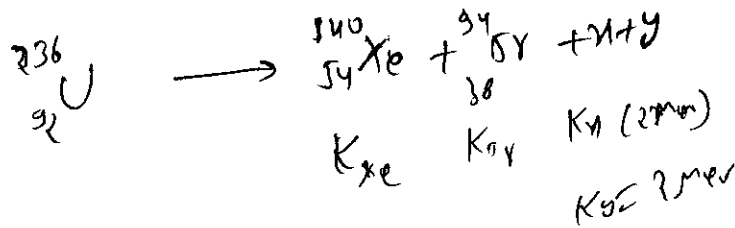 ²³⁶₉₂U ⟶ ¹⁴⁰₅₄Xe + ⁹⁴₃₈Sr + x + y
K_Xe K_Sr Kx (2 MeV)
Ky = 2 MeV